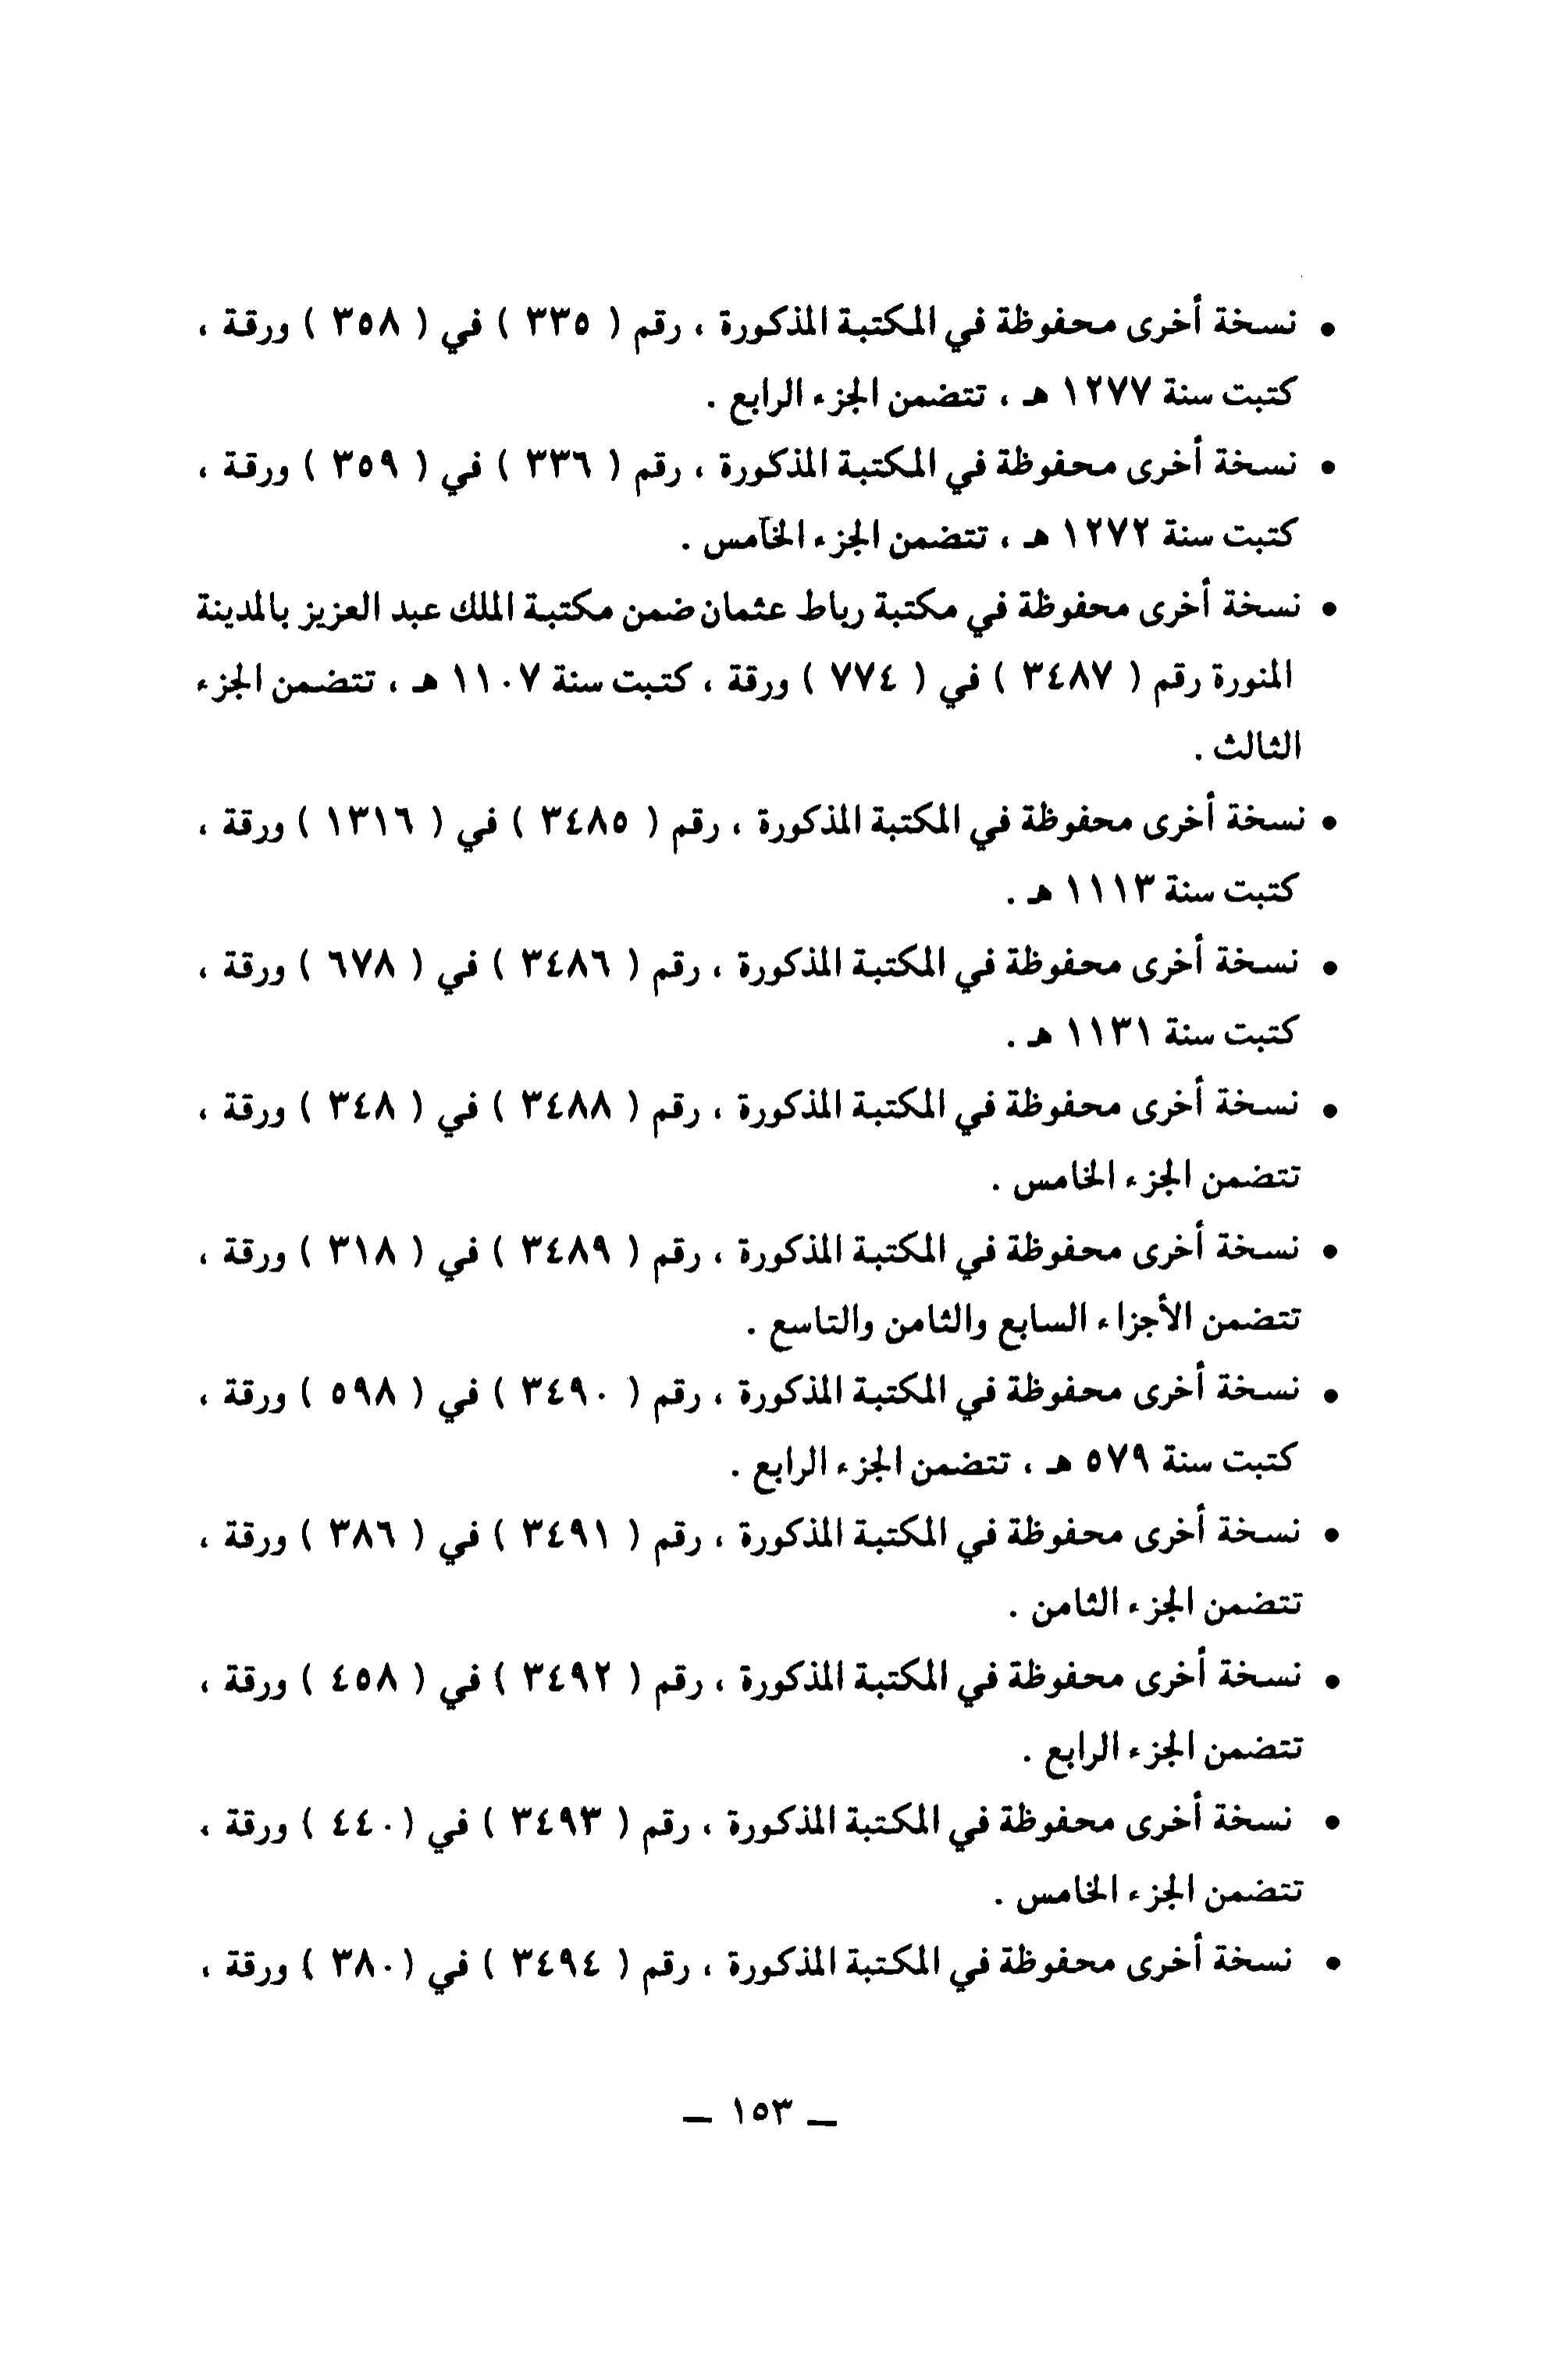 • نسخة أخرى محفوظة في المكتبة المذكورة ، رقم ( ٣٣٥ ) في ( ٣٥٨ ) ورقة ،
كتبت سنة ١٢٧٧ هـ ، تتضمن الجزء الرابع .
• نسخة أخرى محفوظة في المكتبة المذكورة ، رقم ( ٣٣٦ ) في ( ٣٥٩ ) ورقة ،
كتبت سنة ١٢٧٢ هـ ، تتضمن الجزء الخامس .
• نسخة أخرى محفوظة في مكتبة رباط عثمان ضمن مكتبة الملك عبد العزيز بالمدينة
المنورة رقم ( ٣٤٨٧ ) في ( ٧٧٤ ) ورقة ، كتبت سنة ١١٠٧ هـ ، تتضمن الجزء
الثالث .
• نسخة أخرى محفوظة في المكتبة المذكورة ، رقم ( ٣٤٨٥ ) في ( ١٣١٦ ) ورقة ،
كتبت سنة ١١١٣ هـ .
• نسخة أخرى محفوظة في المكتبة المذكورة ، رقم ( ٣٤٨٦ ) في ( ٦٧٨ ) ورقة ،
كتبت سنة ١١٣١ هـ .
• نسخة أخرى محفوظة في المكتبة المذكورة ، رقم ( ٣٤٨٨ ) في ( ٣٤٨ ) ورقة ،
تتضمن الجزء الخامس .
• نسخة أخرى محفوظة في المكتبة المذكورة ، رقم ( ٣٤٨٩ ) في ( ٣١٨ ) ورقة ،
تتضمن الأجزاء السابع والثامن والتاسع .
• نسخة أخرى محفوظة في المكتبة المذكورة ، رقم ( ٣٤٩٠ ) في ( ٥٩٨ ) ورقة ،
كتبت سنة ٥٧٩ هـ ، تتضمن الجزء الرابع .
• نسخة أخرى محفوظة في المكتبة المذكورة ، رقم ( ٣٤٩١ ) في ( ٣٨٦ ) ورقة ،
تتضمن الجزء الثامن .
• نسخة أخرى محفوظة في المكتبة المذكورة ، رقم ( ٣٤٩٢ ) في ( ٤٥٨ ) ورقة ،
تتضمن الجزء الرابع .
• نسخة أخرى محفوظة في المكتبة المذكورة ، رقم ( ٣٤٩٣ ) في ( ٤٤٠ ) ورقة ،
تتضمن الجزء الخامس .
• نسخة أخرى محفوظة في المكتبة المذكورة ، رقم ( ٣٤٩٤ ) في ( ٣٨٠ ) ورقة ،
ـ ١٥٣ ـ